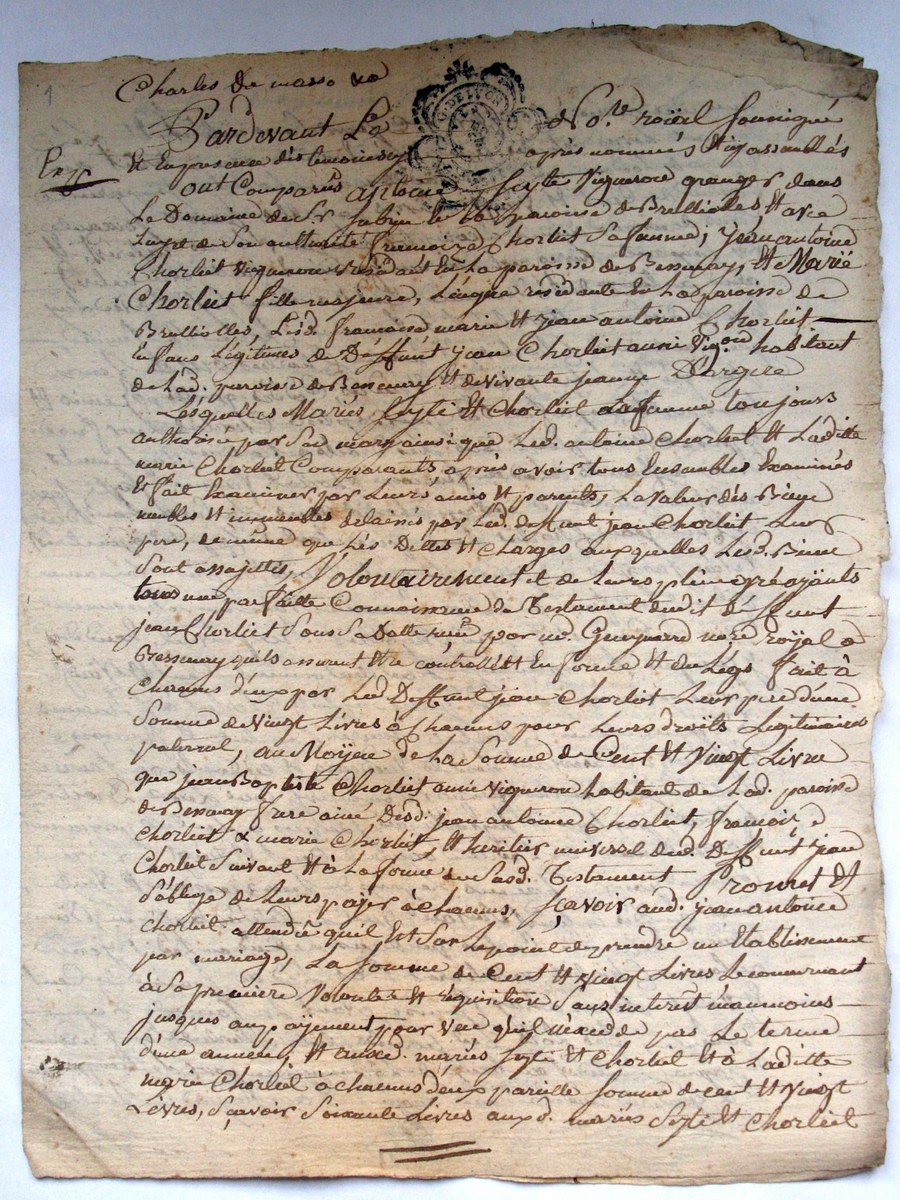 1
Charles De masso
G. DE LYON
Pardevant Le No.re roïial soussigné
Et En presence des temoins apres nommés Et assemblés
ont Comparus antoine Syte Vigneron granger dans
Le Domaine du Sr paroisse de Brullioles Et avec
Luy et de Son authorité francoize Chorliet Sa femme; jean antoine
Chorliet Vigneron residant En La paroisse de Bessenay, Et Marie
Chorliet fille majeure, residante En La paroisse de
Brullioles, Lesd. francoise marie Et jean antoine Chorliet
Enfans Légitimes de Deffunt jean Chorliet aussi Vigon habitant
de Lad. paroisse de Bessenay Et de vivante jeanne
Lesquelles Mariés Syte Et Chorliet La femme toujours
authorisé par Son mary ainsi que Led. antoine Chorliet Et Laditte
marie Chorliet Comparants apres avoir tous Ensembles Examinés
Et fait Examiner par Leurs amis Et parents, La valeur des Biens
meubles Et immeubles delaissés par Led. deffunt jean Chorliet Leur
pere, de meme que Les Dettes Et Charges auxquelles Lesd. Biens
Sont assujettes, Volontairement et de Leurs plein gré ayants
tous une parfaitte Connoissance du Testament dudit Deffunt
jean Chorliet Sous Sa Datte reçu par me. Guynard nore Royal a
Bessenay quils assurent Etre contrôllé Et En forme Et du Légs fait à
Chacuns d'eux par Led. Deffunt jean Chorliet Leur pere d'une
Somme de Vingt Livres à Chacuns pour Leurs droits Legitimaires
paternel, au Moÿen de La Somme de Cent Et Vingt Livres
que jean Baptiste Chorliet aussi Vigneron habitant de Lad. paroisse
de Bessenay frere ainé Desd. jean antoine Chorliet, francoise
Chorliet & marie Chorliet, Et heritier universel dud. Deffunt jean
Chorliet Suivant Et à La forme de Susd. Testament Promet Et
S'oblige de Leurs payer à chacuns, Sçavoir aud. jean antoine
Chorliet attendu quil Est Sur Le point de prendre un Etablissement
par mariage, La Somme de Cent Et Vingt Livres Le concernant
à Sa premiere Volonté Et réquisition Sans interest néanmoins
jusques au payement pour Veue qu'il n'excede pas Le terme
d'une année, Et auxd. mariés Syte Et Chorliet Et à Laditte
marie Chorliet à chacuns d'eux pareille Somme de cent Et Vingt
Livres, Sçavoir Soixante Livres auxd. mariés Syte Et Chorliet